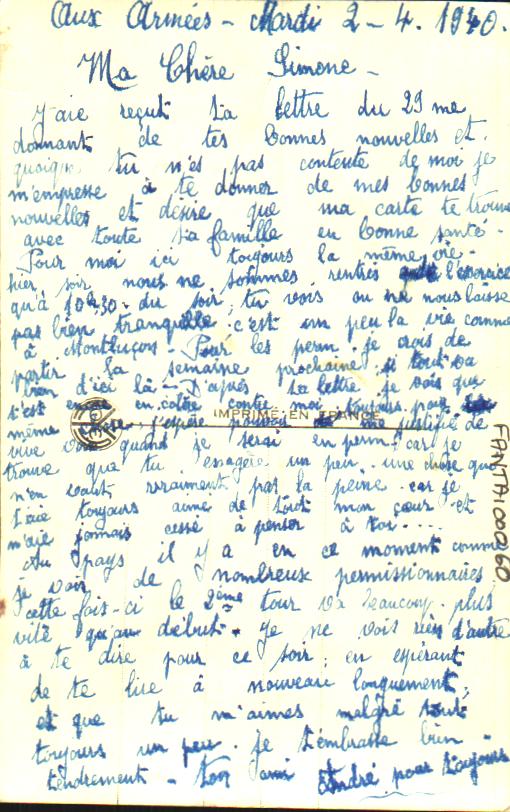 Aux Armées - Mardi 2-4.1940.
Ma Chère Simone -
J'aie reçut ta lettre du 29 me
donnant de tes bonnes nouvelles et
quoique tu n'es pas contente de moi je
m'empresse à te donner de mes bonnes
nouvelles et désire que ma carte te trouve
avec toute ta famille en bonne santé -
Pour moi ici toujours la même vie -
hier soir nous ne sommes rentrés de l'exercice
qu'à 10h30 du soir, tu vois on ne nous laisse
pas bien tranquille c'est un peu la vie comme
à Montluçon - Pour les perm. je crois de
partir la semaine prochaine si tout va
bien d'ici là - D'après ta lettre je vois que
t'est en colère contre moi toujours pour
même j'espère pouvoir me justifié de
vive voix quand je serai en perm, car je
trouve que tu exagère un peu une chose que
n'en vaut vraiment pas la peine car je
t'aie toujours aimé de tout mon cœur et
n'aie jamais cessé à penser à toi ....
Au pays il y a en ce moment comme
je vois de nombreux permissionnaires,
cette fois-ci le 2ème tour va beaucoup plus
vite qu'au début. Je ne vois rien d'autre
à te dire pour ce soir, en espérant
de te lire à nouveau longuement,
et que tu m'aimes malgré tout
toujours un peu. Je t'embrasse bien
tendrement - Ton ami André pour toujours
IMPRIMÉ EN FRANCE
FANTA:000260